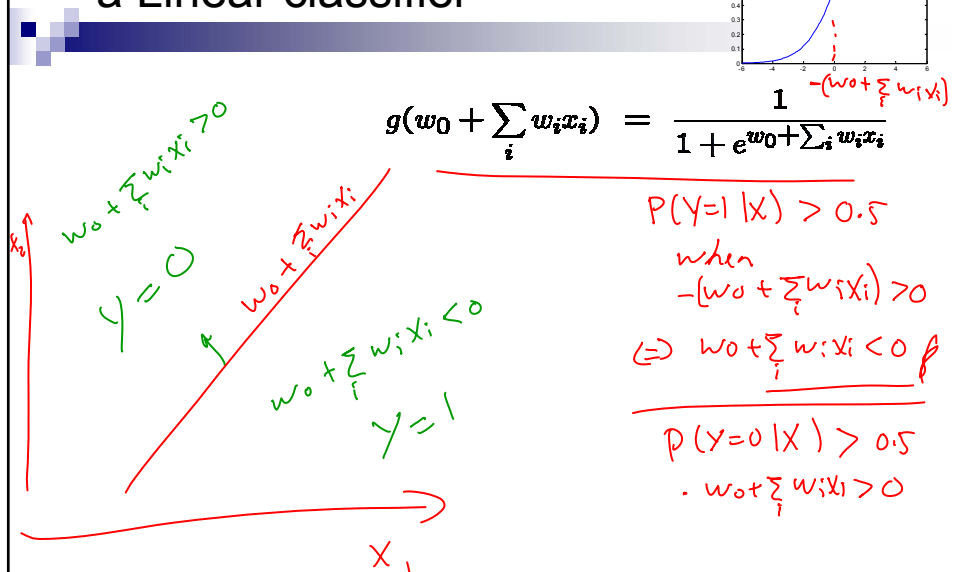 a Linear classifier
0.4
0.3
0.2
0.1
0
-6 -4 -2 0 2 4 6
-(w0 + Σ_i w_i x_i)
g(w_0 + ∑_i w_i x_i) = 1 / (1 + e^{w_0 + ∑_i w_i x_i})
w0 + Σ_i w_i x_i > 0
Y = 0
w0 + Σ_i w_i x_i
w0 + Σ_i w_i x_i < 0
Y = 1
x_2
X_1
P(Y=1 |X) > 0.5
when
-(w0 + Σ_i w_i x_i) > 0
(=) w0 + Σ_i w_i x_i < 0
P(Y=0 |X) > 0.5
. w0 + Σ_i w_i x_i > 0